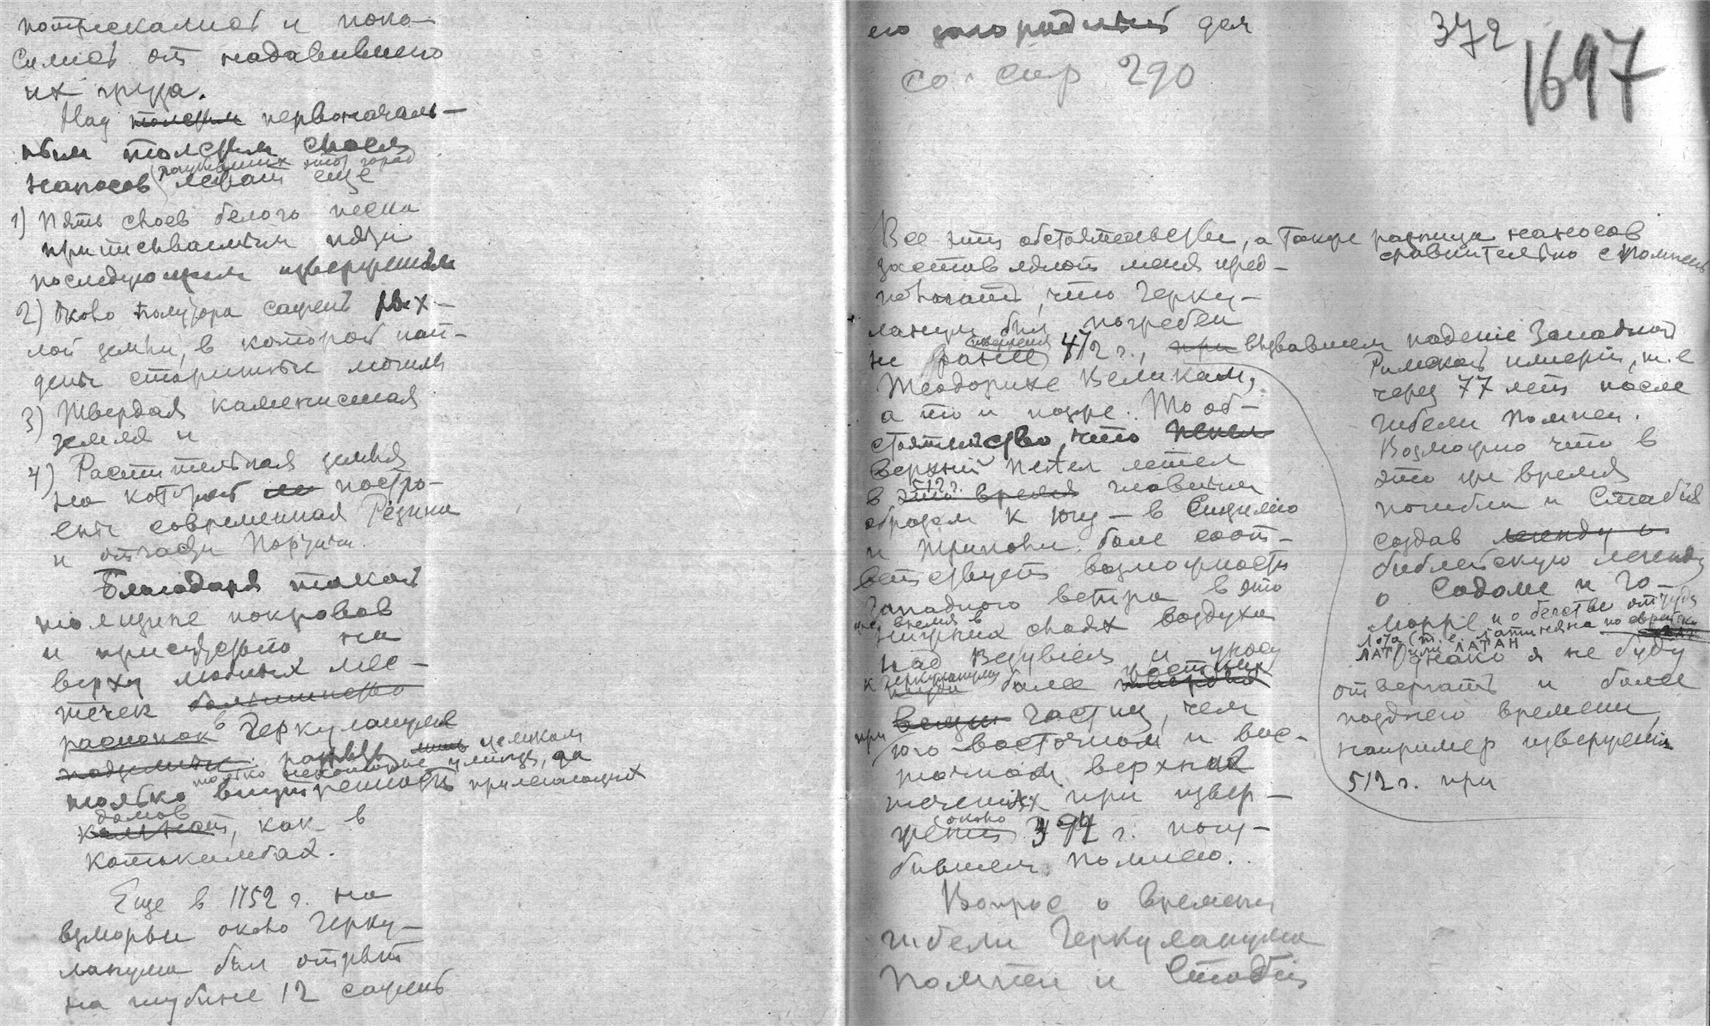 потрескались и поко-
сились от надавившего
их груза.
Над толстым первоначаль-
ным толстым слоем
наносов (погубивших этот город) лежат еще
1) Пять слоев белого песка
приписываемых пяти
последующим извержениям
2) Около полутора сажень рых-
лой земли, в которой най-
дены старинные могилы
3) Твердая каменистая
земля и
4) Растительная земля
на которой постро-
ены современная Резина
и отчасти Портичи.
Благодаря такой
толщине покровов
и присутствию на
верху жилых мес-
течек большинство
раскопок в Геркулануме
подземные. разрыты лишь целиком
только некоторые улицы, да
только внутренность прилегающих
домов
комнат, как в
катакомбах.
Еще в 1752 г. на
взморьи около Герку-
ланума был открыт
на глубине 12 сажень
его загородный дом
со. стр 290
372
1697
Все эти обстоятельства, а также разница наносов
сравнительно с Помпеей
заставляют меня пред-
полагать, что Герку-
ланум был погребен
не ранее извержения 472 г., при вызвавшем падение Западной
Теодорихе Великом,
а то и позже. То об-
стоятельство, что пепел
верхний пепел летел
в 512 г. это время главным
образом к югу — в Сицилию
и Триполи более соот-
ветствует возможности
западного ветра в это
же время в
нижних слоях воздуха
над Везувием и уносу
к Геркулануму
более
вещи частиц, чем
при юго-восточном и вос-
точном верхних
течениях при извер-
жении около 394 г. погу-
бившем Помпею.
Вопрос о времени
гибели Геркуланума
Помпеи и Стабии
Римской империи, т.е
через 77 лет после
гибели Помпеи.
Возможно что в
это же время
погибли и Стабия
создав легенду о
библейскую легенду
о Содоме и Го-
морре и о бегстве оттуда
Лота (т.е. латинянина по еврейски
ЛАТ или ЛАТАН
Однако я не буду
отвергать и более
позднего времени,
например извержения
512 г. при